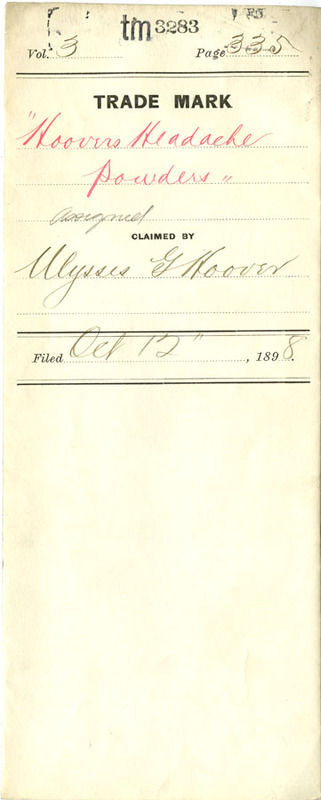 tm 3283
Vol. 3 Page 335
TRADE MARK
"Hoovers Headache
Powders"
assigned
CLAIMED BY
Ulysses G Hoover
Filed Oct 12", 1898.